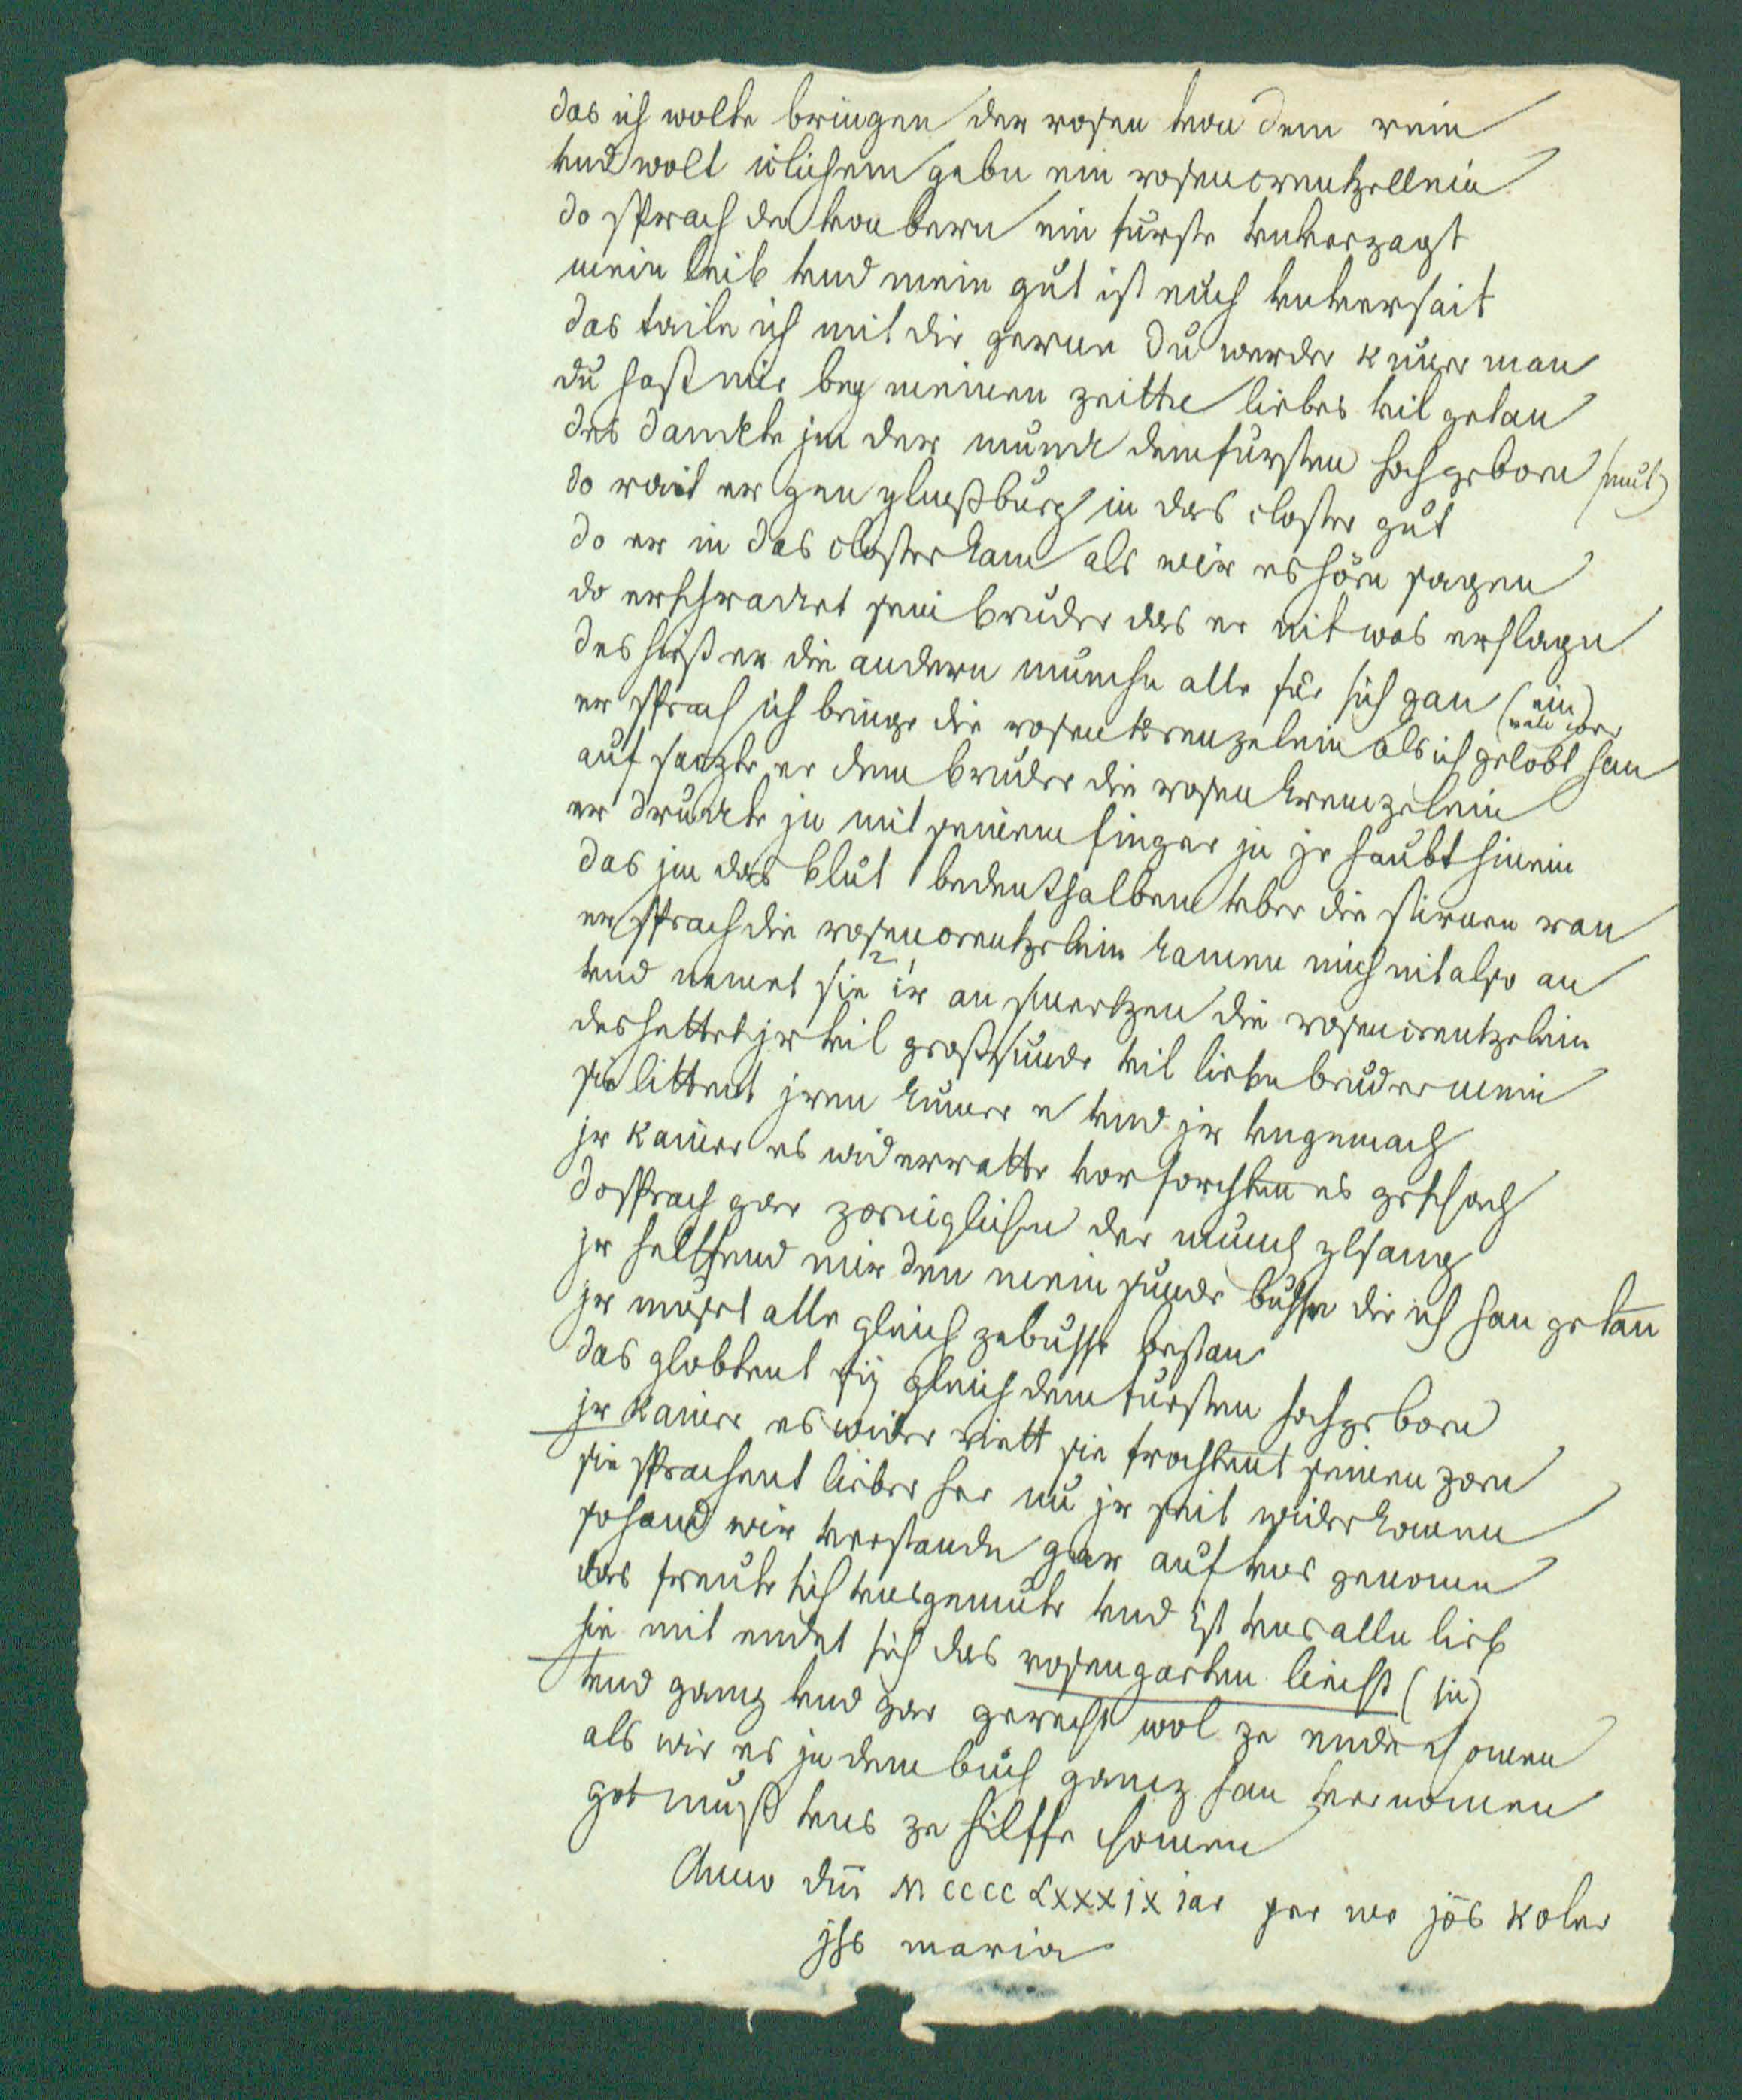 das ich wolte bringen der rosen von dem rein
vnd wolt iclichem geben ein rosencrentzellein
do sprach der von bern ein furste vnverzagt
mein leib vnd mein gut ist euch vnversait
das taile ich mit dir gerne du werder kuner man
du hast mir bey meinen zeitte liebes vil getan
des danckte jm der munch dem fursten hochgeborn (mut)
do rait er gen ylmeßburg in das closter gut
do er in das closter kam als wir es hörn sagen
do erschracket sein bruder das er nit was erslagn
des hieß er die andern munche alle für sich gan (ein)
er sprach ich bringe die rosenkrenzelein als ich gelobt han
auf sazte er dem bruder die rosen krenzelein
er druckte jn mit seinem finger jn jr haubt hinein
das jm das blut bedenthalben vber die stirnen ran
er sprach die rosencrentzelein kamen mich nit also an
vnd nemet sie ir an smertzen die rosencrentzelein
des hettet jr vil groß sunde vil lieben bruder mein
sie littent jren kumer e vnd jr vngemach
jr kainer es widerratte vor forchten es geschach
do sprach gar zorniglichen der munch ylsang
jr helffend mir den mein sunde bussen die ich han getan
jr musset alle gleich ze busse bestan
das globtent sij gleich dem fursten hochgeborn
jr kainer es wider riett sie forchtent seinen zorn
sie sprachent lieber her nu jr seit wider komen
so hand wir verstande gar auf vns genomen
das freute sich vns gemute vnd ist vns allen lieb
hie mit endet sich das rosengarten liecht (in)
vnd ganz vnd gar gerecht wol ze ende chomen
als wir es jn dem buch gancz han vernomen
got muß vns ze hilffe chomen
Anno dnī M cccc Lxxxjx iar per me jōs koler
jhs maria